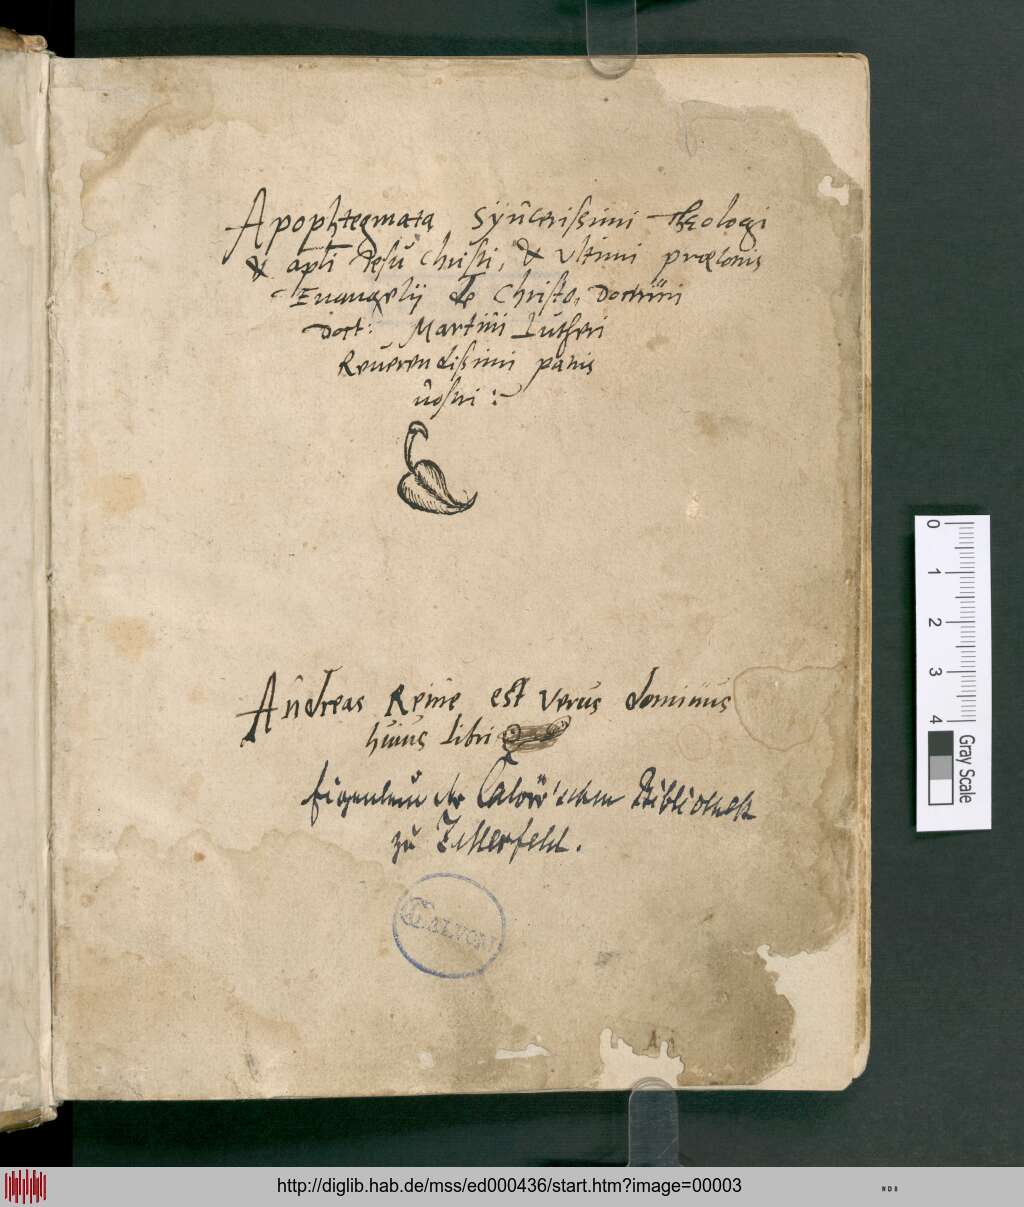 Apophtegmata Sÿncerißimi Theologi
& apli Jesu Christi, & Vltimi præconis
Euangelij de Christo, Doctrini
Doct: Martini Lutheri
Reuerendißimi patris
nostri :
Andreas Reine est verus dominus
huius libri
Eigenthum der Calvör'schen Bibliothek
zu Zellerfeld.
CALVÖR
0 1 2 3 4
Gray Scale
http://diglib.hab.de/mss/ed000436/start.htm?image=00003